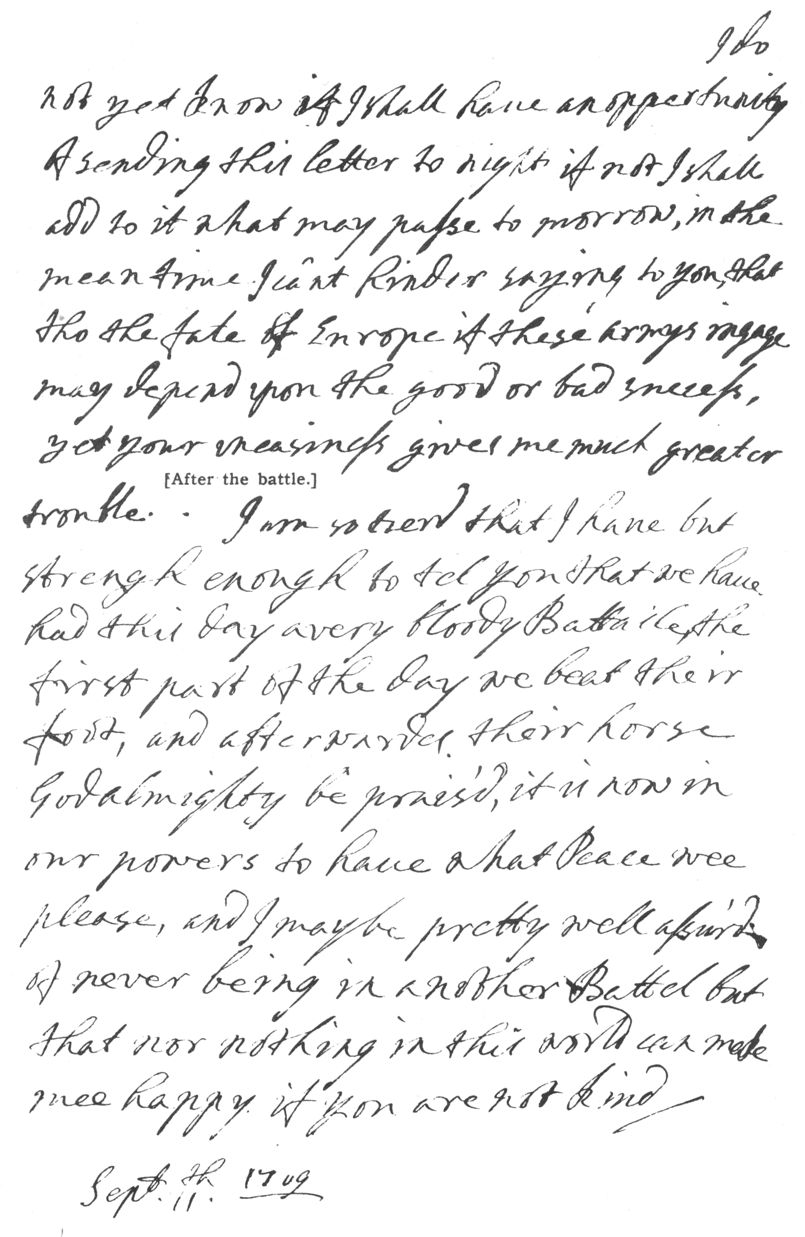 I do
not yet know if I shall haue an oppertunity
of sending this letter to night if not I shall
add to it what may passe to morrow, in the
mean time I cânt hinder saying to you, that
tho the fate of Europe if these armys ingage
may depend upon the good or bad success,
yet your uneasiness gives me much greater
[After the battle.]
trouble. . I am so tierd that I haue but
strengh enough to tel you that we haue
had this day a very bloody Battaile, the
first part of the day we beat their
foot, and afterwardes their horse
God almighty be prais'd, it is now in
our powers to haue what Peace wee
please, and I may be pretty well assur'd
of never being in another Battel but
that nor nothing in this world can make
mee happy if you are not kind
Sept. 11th. 1709